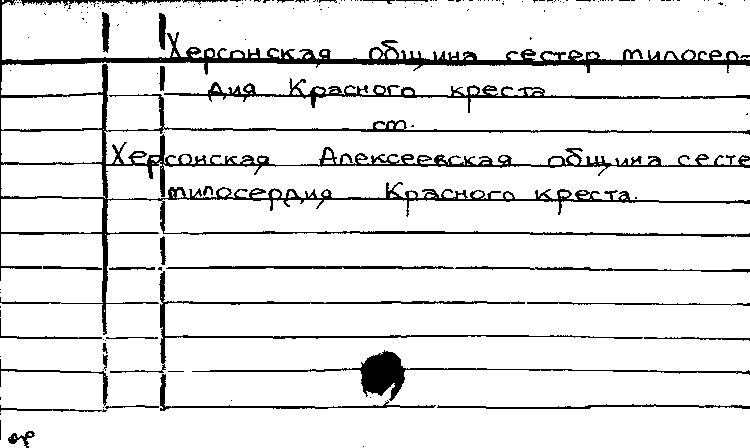 Херсонская община сестер милосер-
дия Красного креста
см.
Херсонская Алексеевская община сесте
милосердия Красного креста.